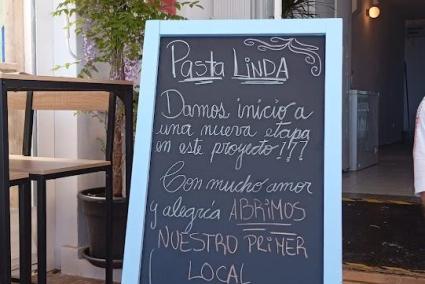 Pasta LINDA
Damos inicio a
una nueva etapa
en este proyecto!!!
Con mucho amor
y alegría ABRIMOS
NUESTRO PRIMER
LOCAL